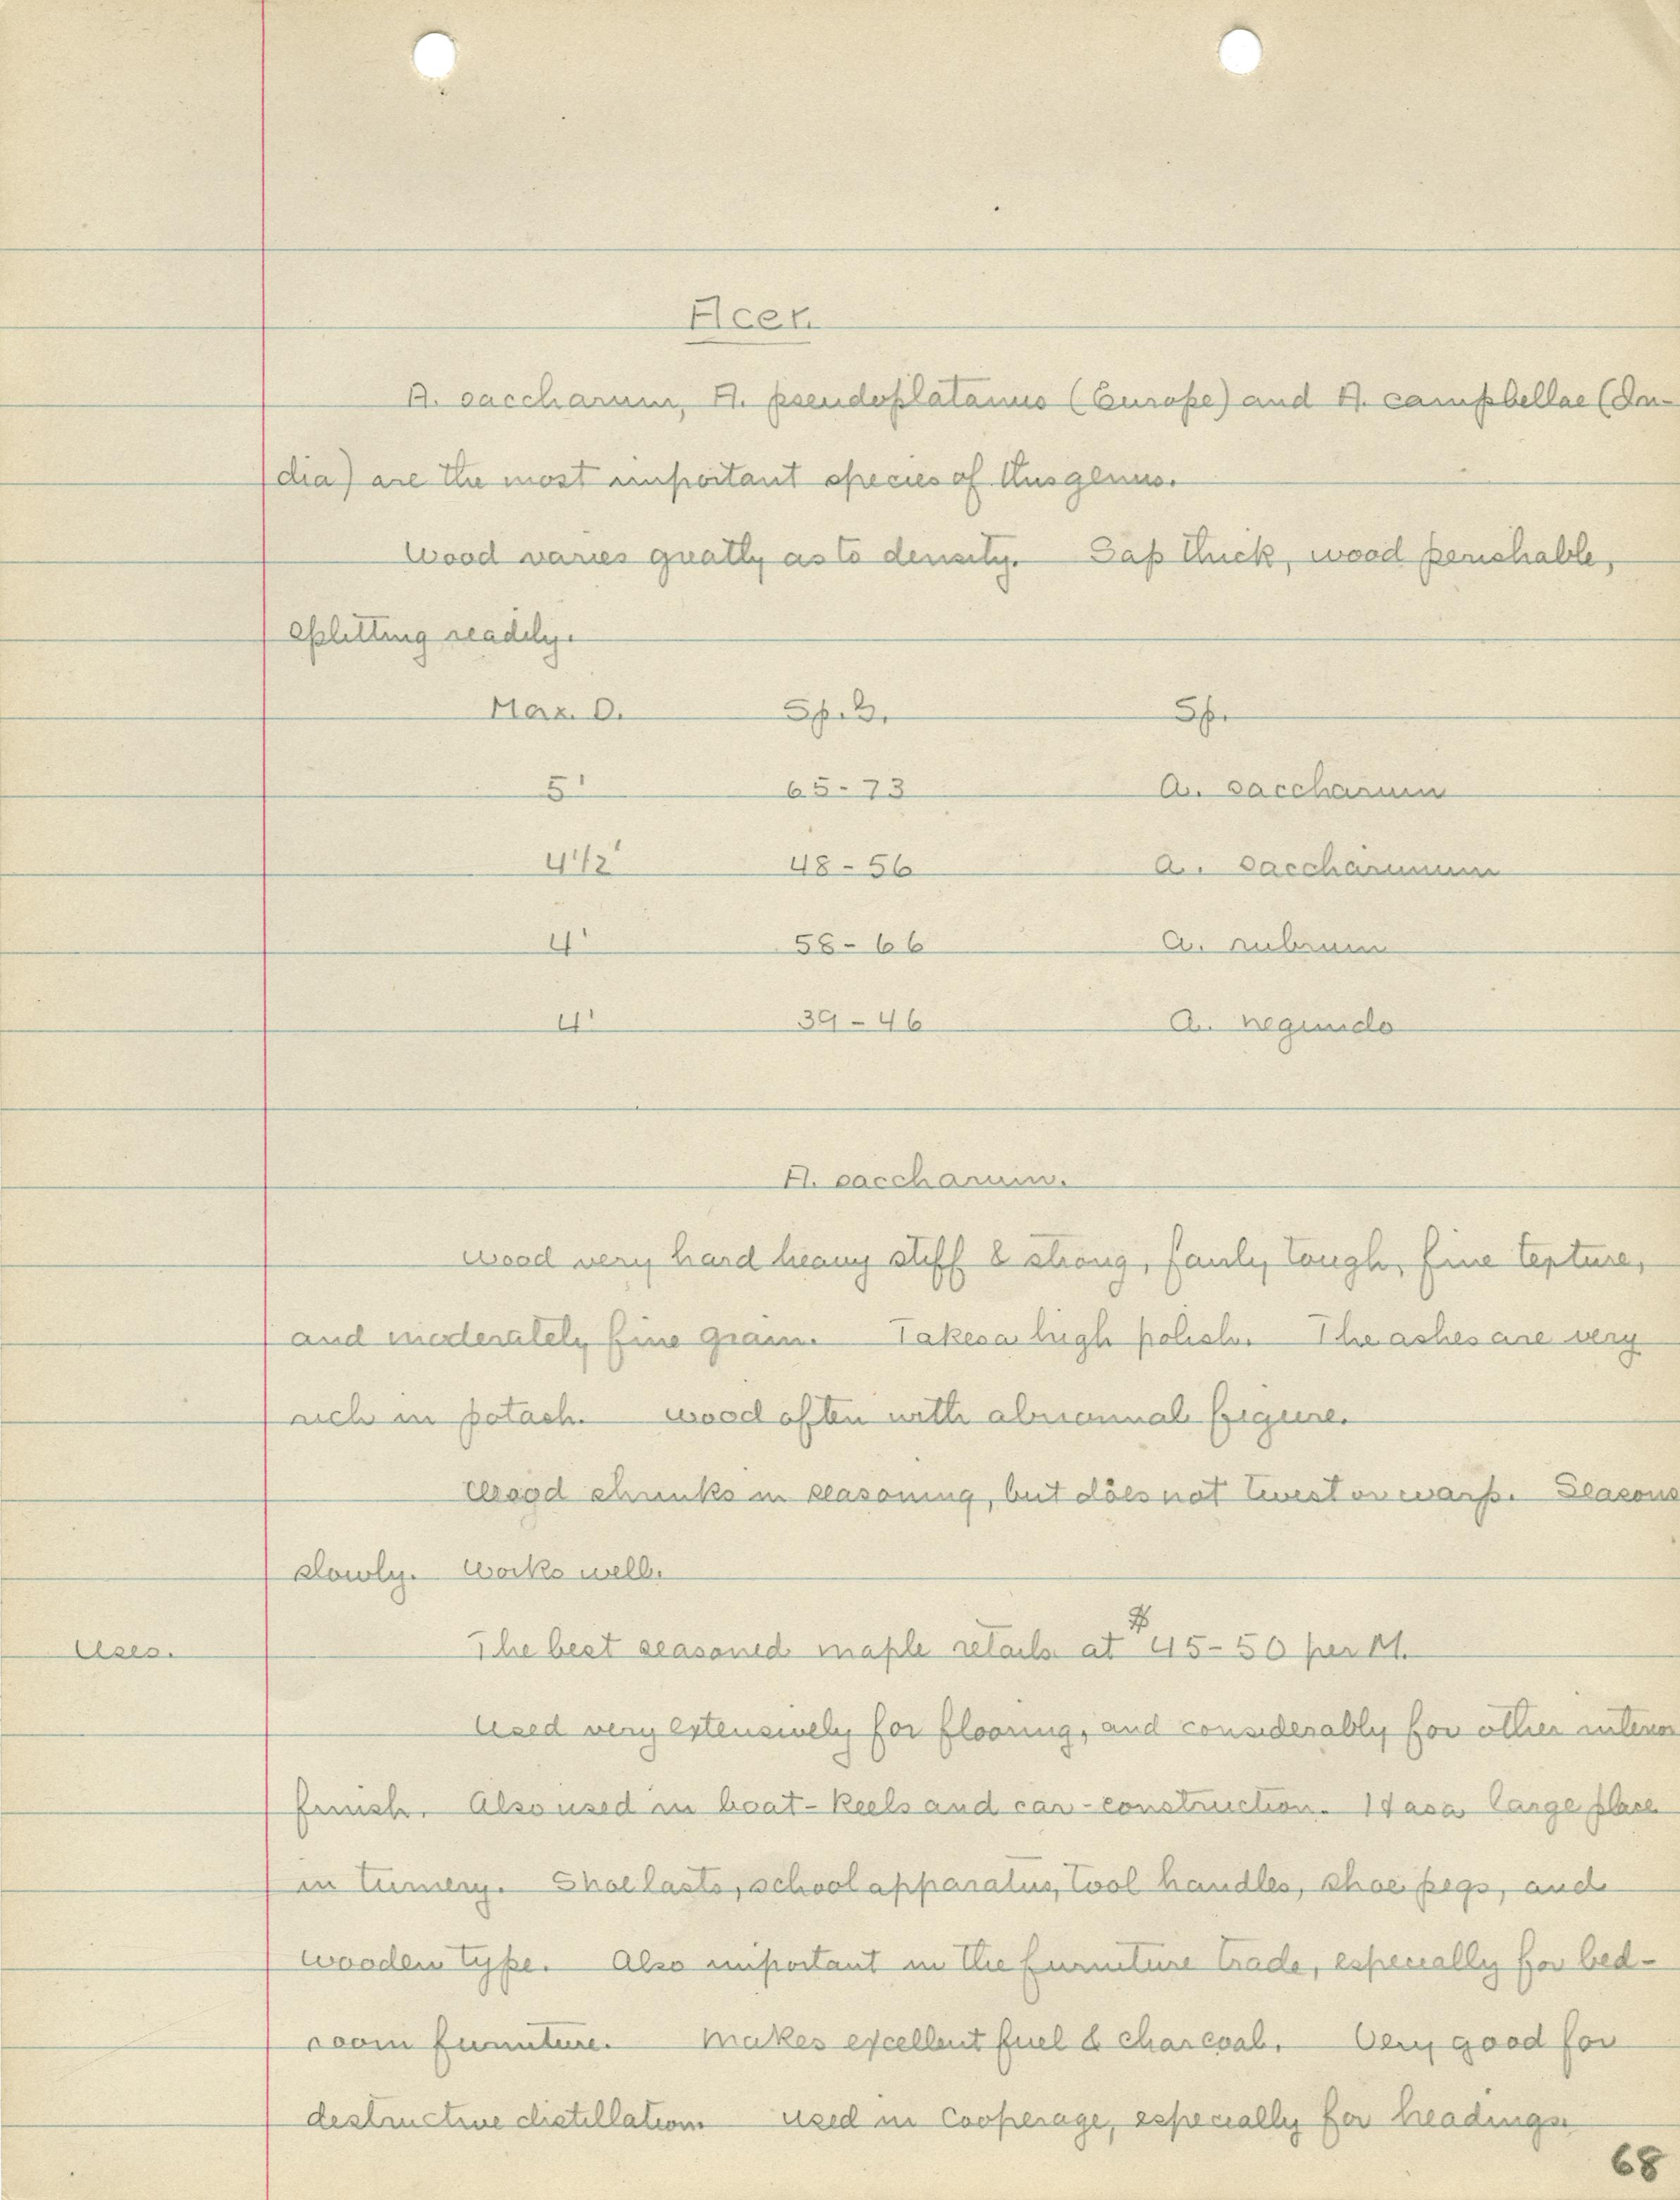 Acer.
A. saccharum, A. pseudoplatanus (Europe) and A. campbellae (In-
dia) are the most important species of this genus.
Wood varies greatly as to density. Sap thick, wood perishable,
splitting readily.
Max. D. Sp. G. Sp.
5' 65-73 A. saccharum
4 1/2' 48-56 A. saccharinum
4' 58-66 A. rubrum
4' 39-46 A. negundo
A. saccharum.
Wood very hard heavy stiff & strong, fairly tough, fine texture,
and moderately fine grain. Takes a high polish. The ashes are very
rich in potash. Wood often with abnormal figure.
Wood shrinks in seasoning, but does not twist or warp. Seasons
slowly. Works well.
Uses. The best seasoned maple retails at $45-50 per M.
Used very extensively for flooring, and considerably for other interior
finish. Also used in boat-keels and car-construction. Has a large place
in turnery. Shoe lasts, school apparatus, tool handles, shoe pegs, and
wooden type. Also important in the furniture trade, especially for bed-
room furniture. Makes excellent fuel & charcoal. Very good for
destructive distillation. Used in cooperage, especially for headings.
68